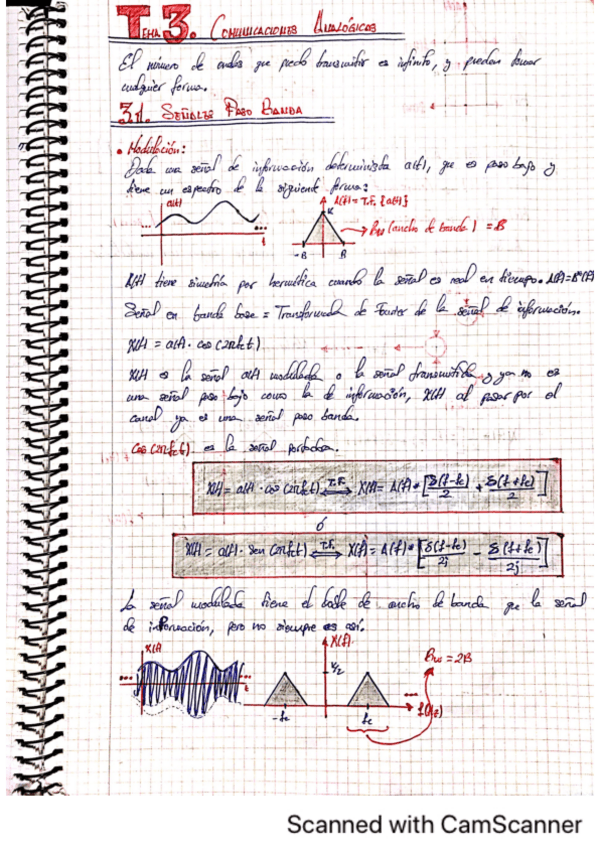 TEMA 3. COMUNICACIONES ANALÓGICAS
El número de ondas que puedo transmitir es infinito, y pueden tomar
cualquier forma.
3.1. SEÑALES PASO BANDA
• Modulación:
Dada una señal de información determinista a(t), que es paso bajo y
tiene un espectro de la siguiente forma:
a(t)
t
A(f) = T.F. {a(t)}
K
-B
B
Bw (ancho de banda) = B
A(f) tiene simetría par hermítica cuando la señal es real en tiempo. A(f)=
Señal en banda base = Transformada de Fourier de la señal de información.
X(t) = a(t) · cos (2πfct)
X(t) es la señal a(t) modulada o la señal transmitida y ya no es
una señal paso bajo como la de información, X(t) al pasar por el
canal ya es una señal paso banda.
cos (2πfct) es la señal portadora.
X(t) = a(t) · cos (2πfct) T.F. X(f) = A(f) * [δ(f-fc)/2 + δ(f+fc)/2]
ó
X(t) = a(t) · sen (2πfct) T.F. X(f) = A(f) * [δ(f-fc)/2j - δ(f+fc)/2j]
La señal modulada tiene el doble de ancho de banda que la señal
de información, pero no siempre es así.
X(t)
t
X(f)
K/2
-fc
fc
f(Hz)
Bw = 2B
Scanned with CamScanner